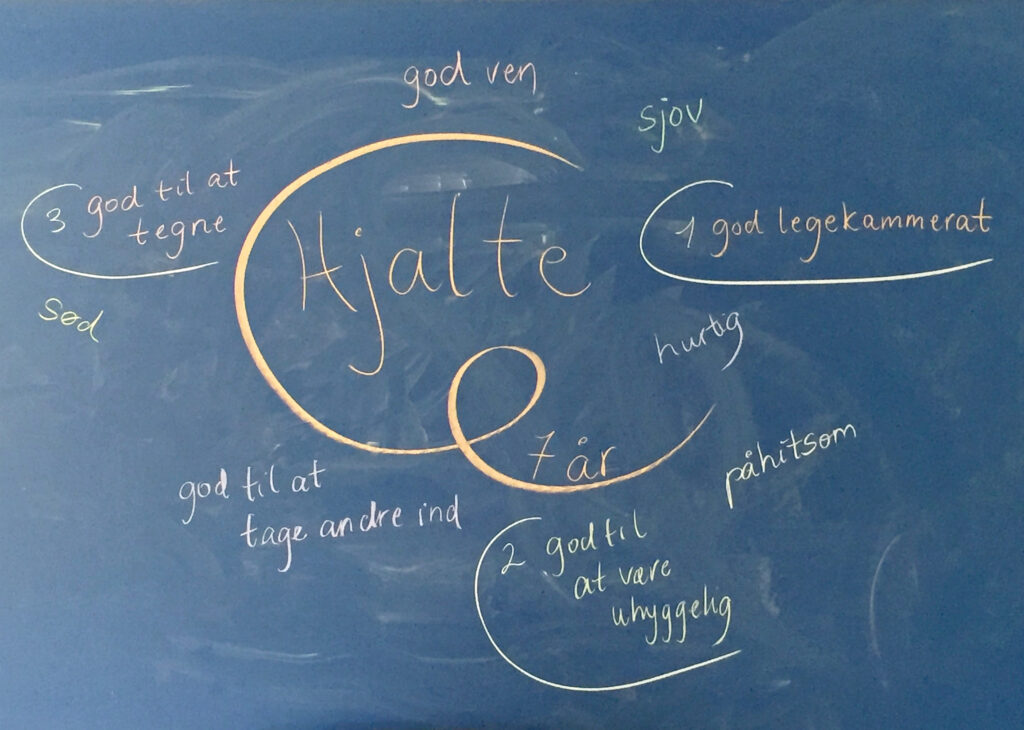 god ven
sjov
3 god til at
tegne
1 god legekammerat
Hjalte
sød
hurtig
7 år
påhitsom
god til at
tage andre ind
2 god til
at være
uhyggelig